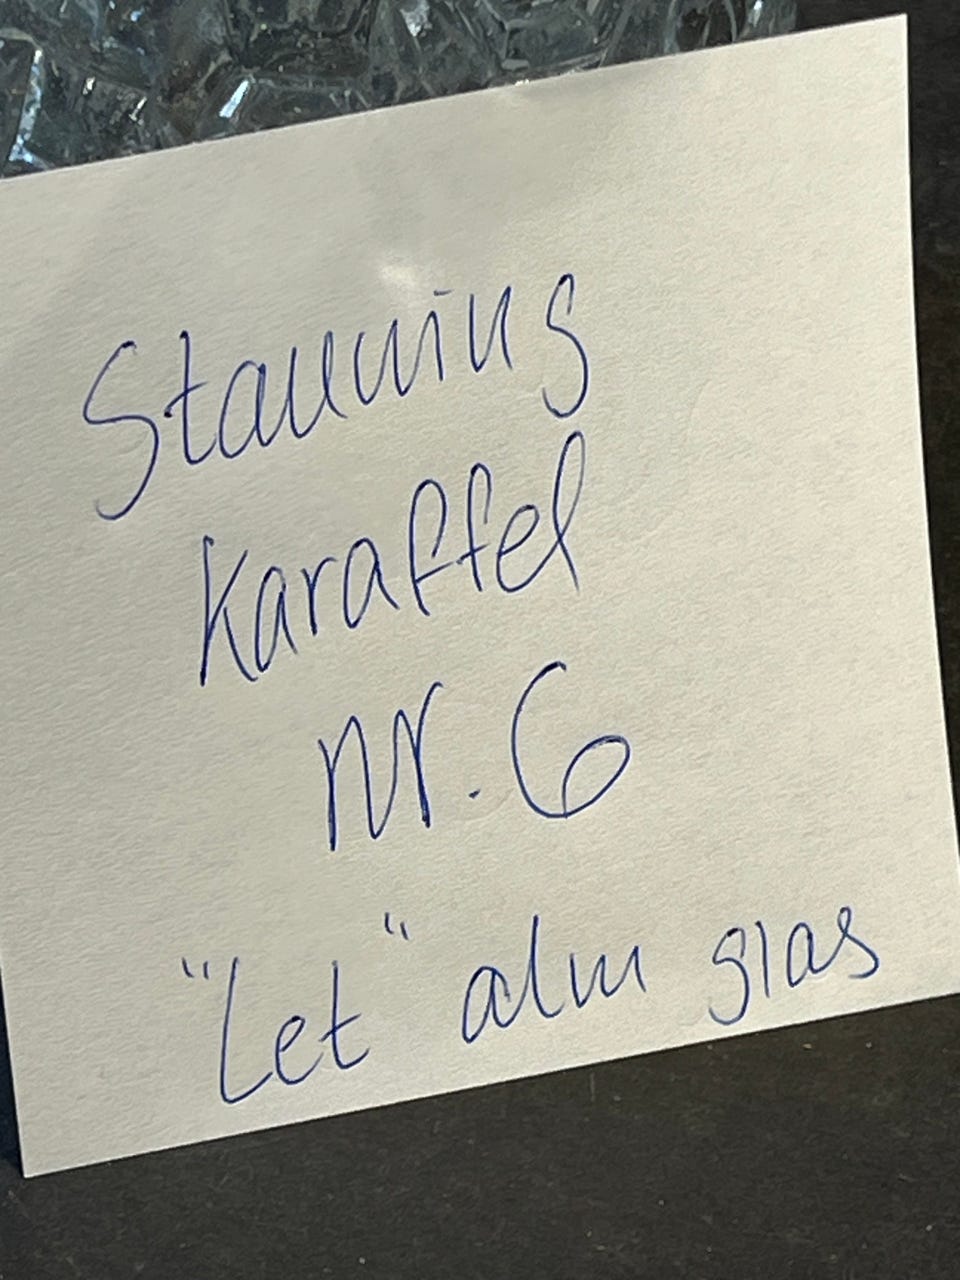 Stauning
Karaffel
nr. 6
"Let" alm glas